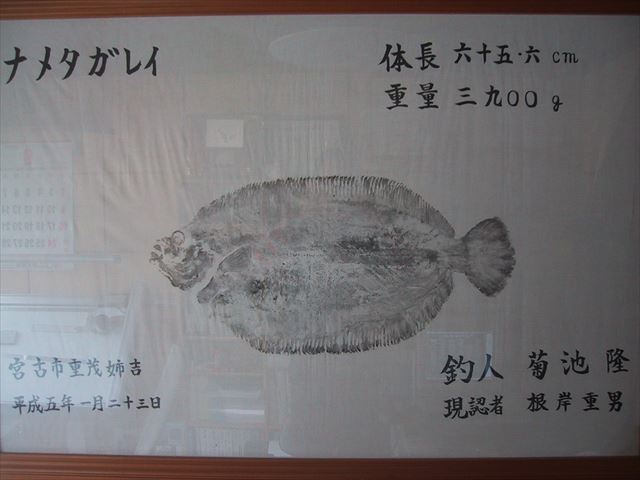 ナメタガレイ
体長 六十五・六 cm
重量 三九〇〇 g
宮古市重茂姉吉
平成五年一月二十三日
釣人 菊池 隆
現認者 根岸重男